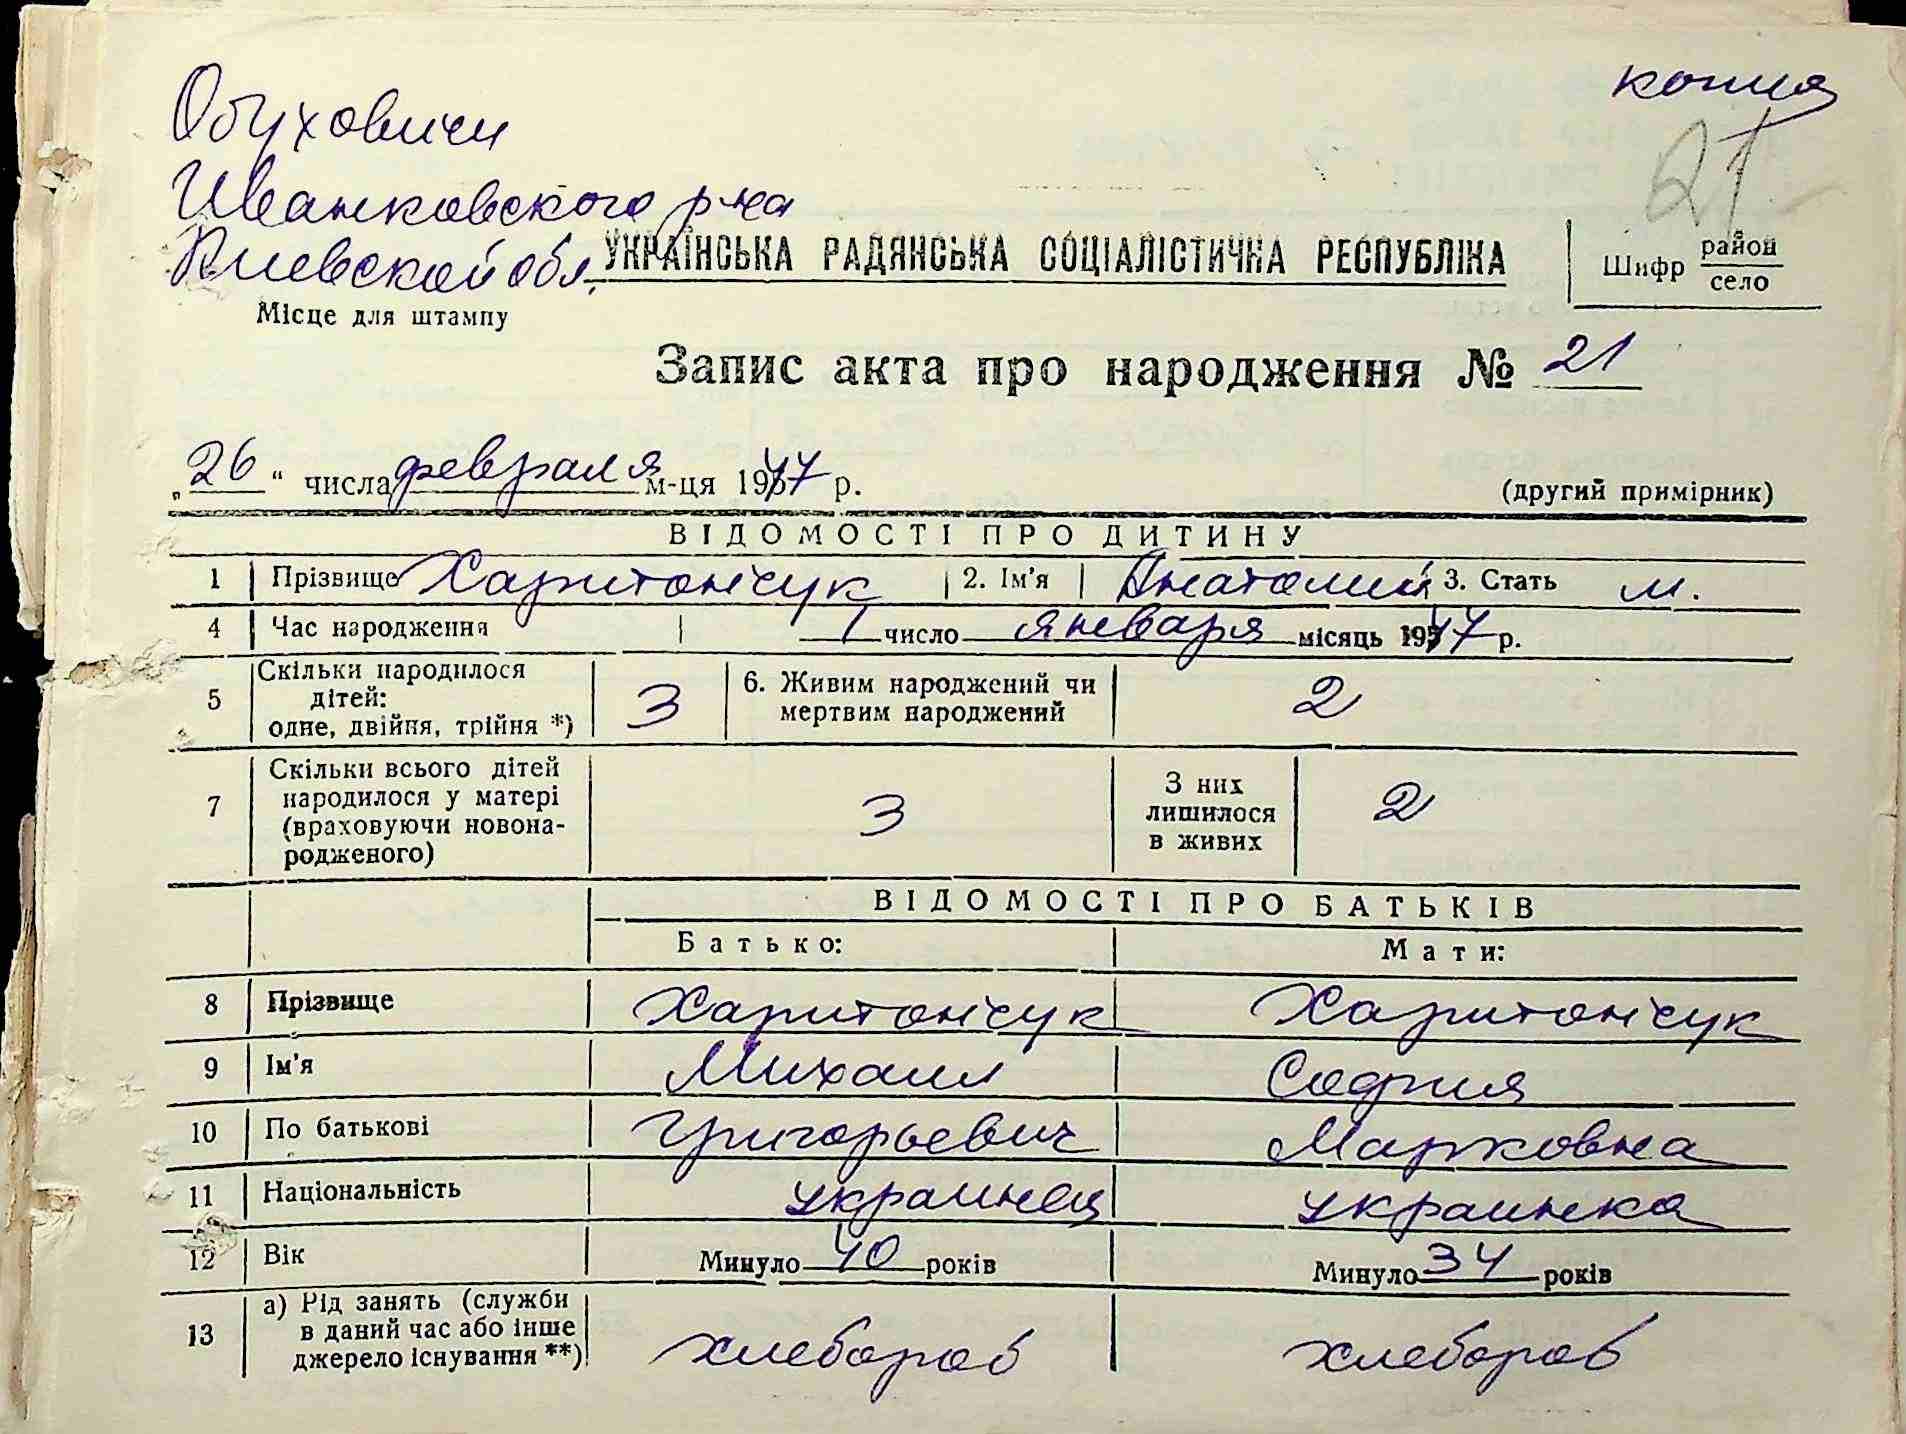 копия
21
Обуховичи
Иванковского р-на
Киевской обл.
УКРАЇНСЬКА РАДЯНСЬКА СОЦІАЛІСТИЧНА РЕСПУБЛІКА
Шифр район
село
Місце для штампу
Запис акта про народження № 21
„26“ числа февраля м-ця 1947 р.
(другий примірник)
ВІДОМОСТІ ПРО ДИТИНУ
1 Прізвище Харитончук 2. Ім'я Анатолий 3. Стать м.
4 Час народження 1 число января місяць 1947 р.
5 Скільки народилося дітей: одне, двійня, трійня *) 3 6. Живим народжений чи мертвим народжений 2
7 Скільки всього дітей народилося у матері (враховуючи новона-родженого) 3 З них лишилося в живих 2
ВІДОМОСТІ ПРО БАТЬКІВ
Батько: Мати:
8 Прізвище Харитончук Харитончук
9 Ім'я Михаил София
10 По батькові Григорьевич Марковна
11 Національність украинец украинка
12 Вік Минуло 40 років Минуло 34 років
13 а) Рід занять (служби в даний час або інше джерело існування **) хлебороб хлебороб